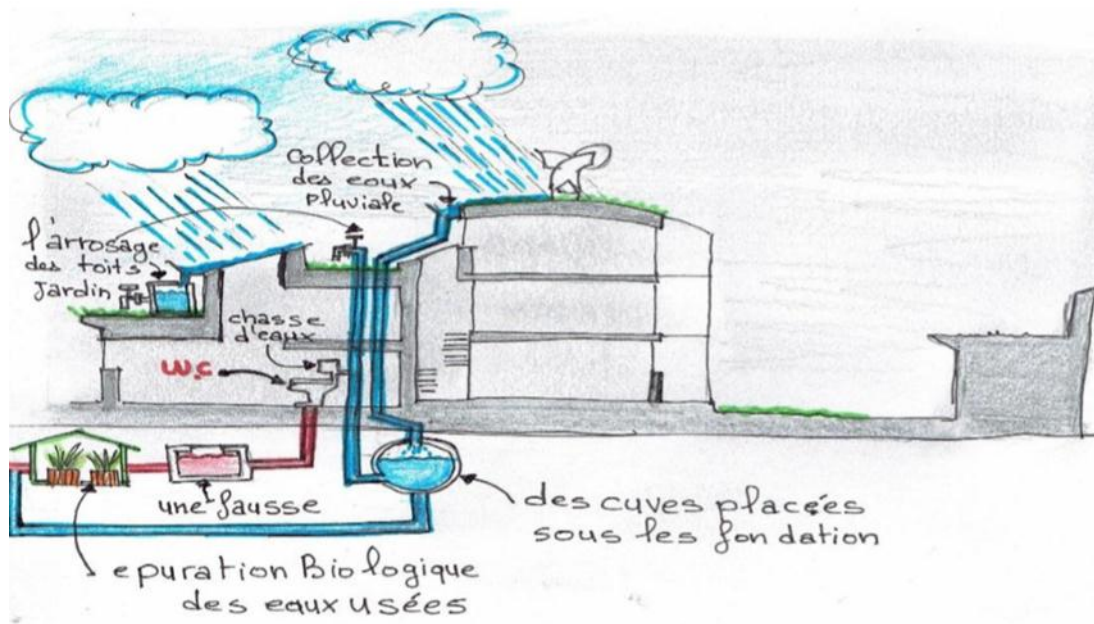 collection
des eoux
pluviale
l'arrosage
des toits
Jardin
chasse
d'eaux
W.C
une fausse
des cuves placées
sous les fondation
epuration Biologique
des eaux usées